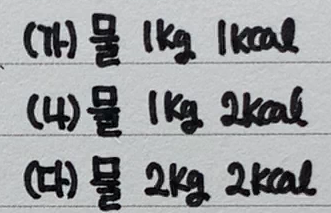 (가) 물 1kg 1kcal
(나) 물 1kg 2kcal
(다) 물 2kg 2kcal